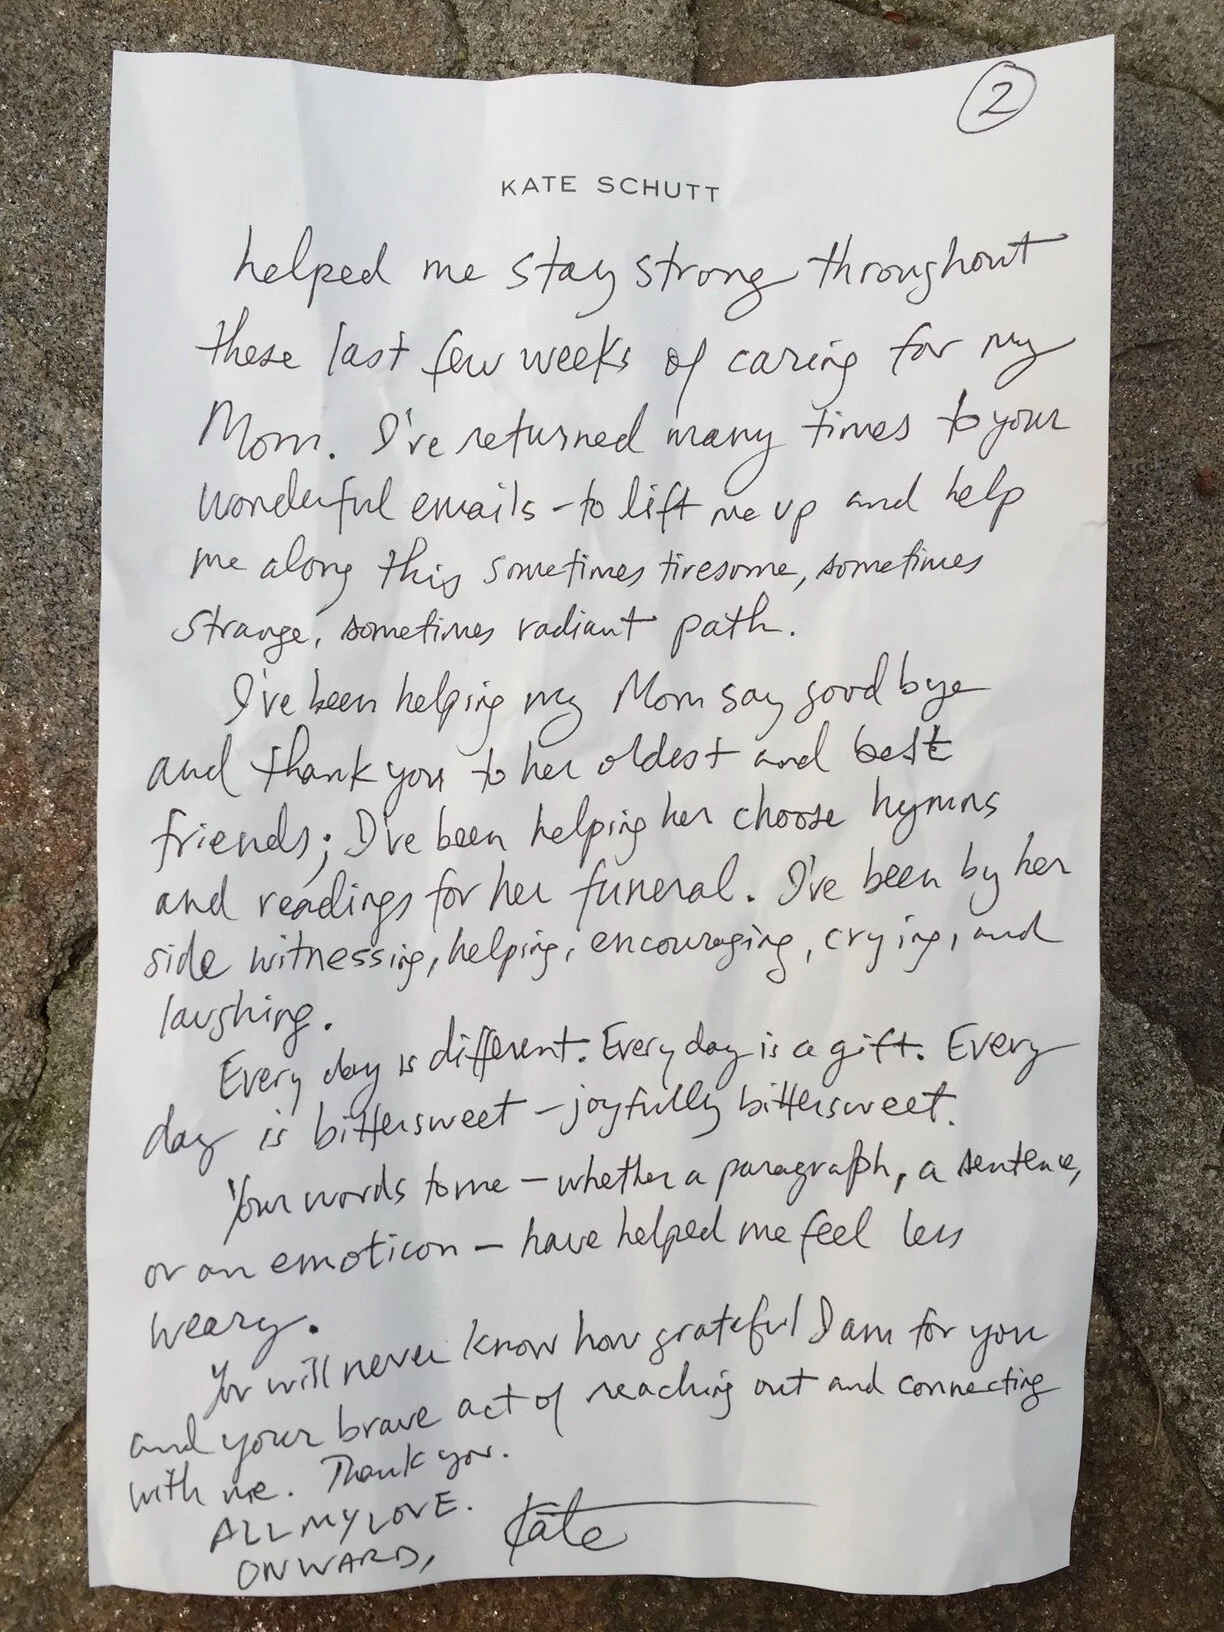 2
KATE SCHUTT
helped me stay strong throughout
these last few weeks of caring for my
Mom. I've returned many times to your
wonderful emails - to lift me up and help
me along this sometimes tiresome, sometimes
strange, sometimes radiant path.
I've been helping my Mom say good bye
and thank you to her oldest and best
friends; I've been helping her choose hymns
and readings for her funeral. I've been by her
side witnessing, helping, encouraging, crying, and
laughing.
Every day is different. Every day is a gift. Every
day is bittersweet - joyfully bittersweet.
Your words to me - whether a paragraph, a sentence,
or an emoticon - have helped me feel less
weary.
You will never know how grateful I am for you
and your brave act of reaching out and connecting
with me. Thank you.
ALL MY LOVE.
ONWARD, Kate